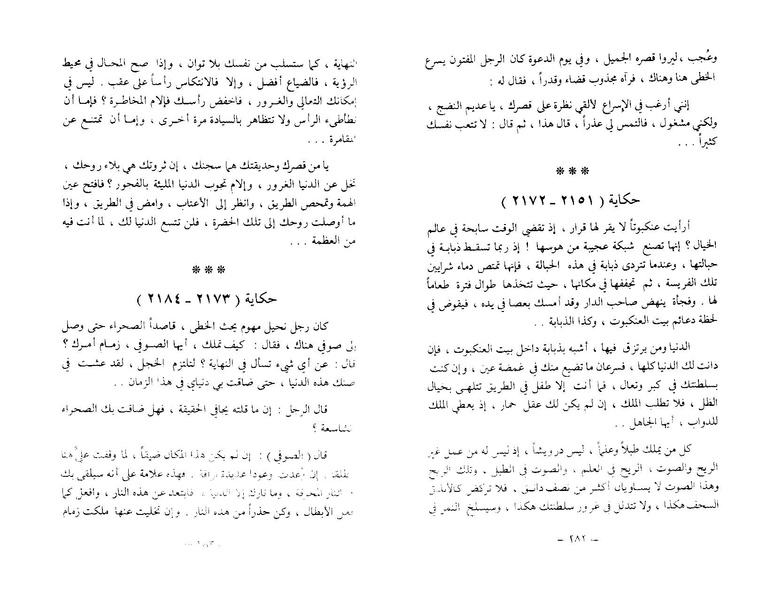 وعُجب ، ليروا قصره الجميل ، وفي يوم الدعوة كان الرجل المفتون يسرع
الخطى هنا وهناك ، فرآه مجذوب قضاء وقدراً ، فقال له :
إنني أرغب في الإسراع لألقي نظرة على قصرك ، يا عديم النضج ،
ولكني مشغول ، فالتمس لي عذراً ، قال هذا ، ثم قال : لا تتعب نفسك
كثيراً ...
***
حكاية ( ٢١٥١ - ٢١٧٢ )
أرأيت عنكبوتاً لا يقر لها قرار ، إذ تقضي الوقت سابحة في عالم
الخيال ؟ إنها تصنع شبكة عجيبة من هوسها ! إذ ربما تسقط ذبابة في
حبالتها ، وعندما تتردى ذبابة في هذه الحبالة ، فإنها تمتص دماء شرايين
تلك الفريسة ، ثم تجففها في مكانها ، حيث تتخذها طوال فترة طعاماً
لها . وفجأة ينهض صاحب الدار وقد أمسك بعصا في يده ، فيقوض في
لحظة دعائم بيت العنكبوت ، وكذا الذبابة ..
الدنيا ومن يرتزق فيها ، أشبه بذبابة داخل بيت العنكبوت ، فإن
دانت لك الدنيا كلها ، فسرعان ما تضيع منك في غمضة عين ، وإن كنت
بسلطنتك في كبر وتعال ، فما أنت إلا طفل في الطريق تتلهى بخيال
الظل ، فلا تطلب الملك ، إن لم يكن لك عقل حمار ، إذ يعطي الملك
للدواب ، أيها الجاهل ..
كل من يملك طبلاً وعلماً ، ليس درويشاً ، إذ ليس له من عمل غير
الريح والصوت ، الريح في العلم ، والصوت في الطبل ، وتلك الريح
وهذا الصوت لا يساويان أكثر من نصف دانق ، فلا تركض كالأبلق
السخف هكذا ، ولا تتدلل في غرور سلطنتك هكذا ، وسيسلخ النمر في
- ٢٨٢ -
النهاية ، كما ستسلب من نفسك بلا توان ، وإذا صح المحال في محيط
الرؤية ، فالضياع أفضل ، وإلا فالانتكاس رأساً على عقب . ليس في
إمكانك التعالي والغرور ، فاخفض رأسك فإلام المخاطرة ؟ فإما أن
تطأطىء الرأس ولا تتظاهر بالسيادة مرة أخرى ، وإما أن تمتنع عن
المقامرة ...
يا من قصرك وحديقتك هما سجنك ، إن ثروتك هي بلاء روحك ،
تخل عن الدنيا الغرور ، وإلام تجوب الدنيا المليئة بالفجور ؟ فافتح عين
الهمة وتمحص الطريق ، وانظر إلى الأعتاب ، وامض في الطريق ، وإذا
ما أوصلت روحك إلى تلك الحضرة ، فلن تتسع الدنيا لك ، لما أنت فيه
من العظمة ...
***
حكاية ( ٢١٧٣ - ٢١٨٤ )
كان رجل نحيل مهموم يحث الخطى ، قاصداً الصحراء حتى وصل
إلى صوفي هناك ، فقال : كيف تملك ، أيها الصوفي ، زمام أمرك ؟
قال : عن أي شيء تسأل في النهاية ؟ لتلتزم الخجل ، لقد عشت في
ضنك هذه الدنيا ، حتى ضاقت بي دنياي في هذا الزمان ..
قال الرجل : إن ما قلته يجافي الحقيقة ، فهل ضاقت بك الصحراء
الشاسعة ؟
قال ( الصوفي ) : إن لم يكن هذا المكان ضيقاً ، لما وقفت عليّ هنا
وعوداً عديدة فهذه علامة على أنه سيلقى بك
النار المحرقة ، وما نارك إلا الدنيا ، فابتعد عن هذه النار ، وافعل كما
فعل الأبطال ، وكن حذراً من هذه النار . وإن تخليت عنها ملكت زمام